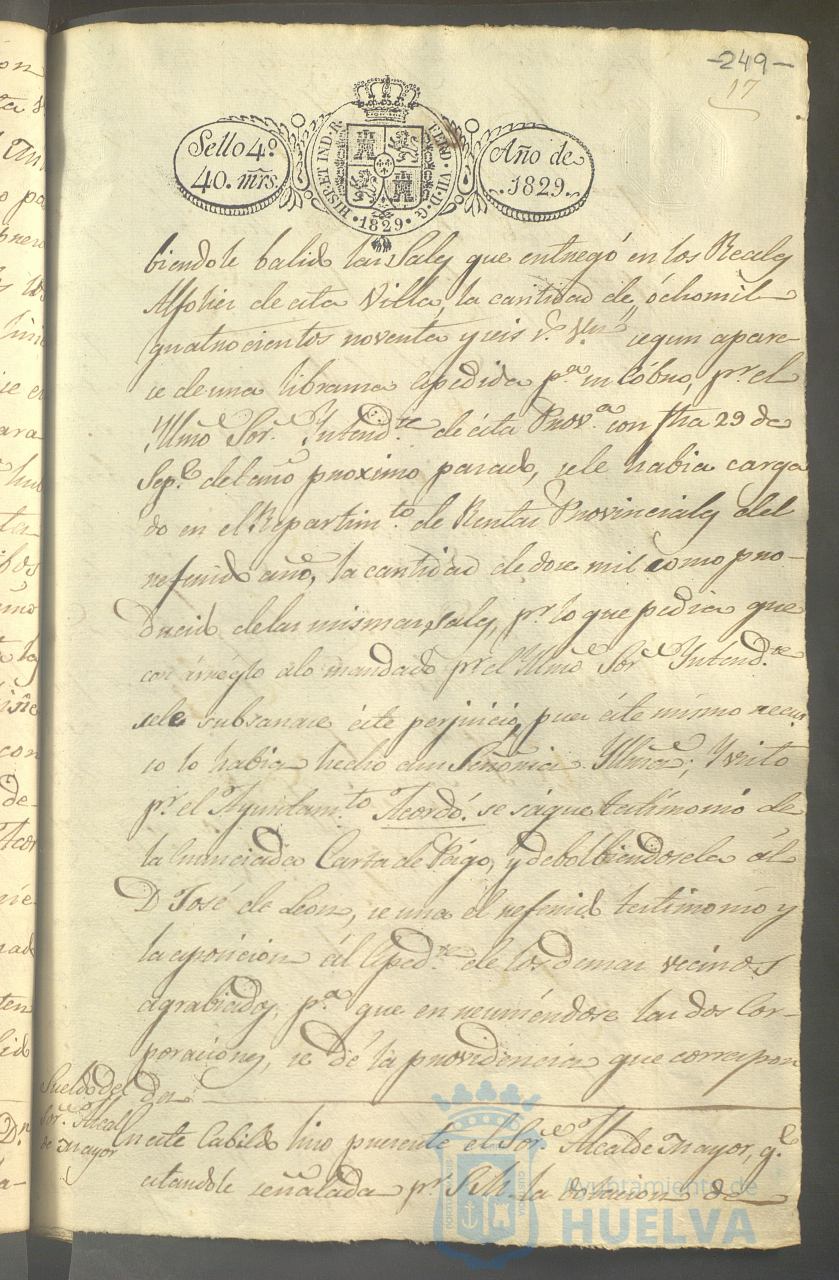 -249-
17
Sello 4º
40. mrs.
HISP. ET IND. R.
FERD. VII. D. G.
1829
Año de
1829.
biendole balido las Sales que entregó en los Reales
Alfolies de esta Villa, la cantidad de ochomil
quatrocientos noventa y seis rs. Vn. segun apare-
ce de una libranza espedida pa. su cobro, pr. el
Ylmo Sor. Yntendte. de esta Prova. con fha 29 de
Sepe. del año proximo pasado, se le habia carga
do en el Repartimto. de Rentas Provinciales del
referido año, la cantidad de doce mil como pro-
ducido de las mismas Sales, pr. lo que pedia que
con arreglo alo mandado pr. el Ylmo Sor. Yntendte.
sele subsanase este perjuicio, pues este mismo recur
so lo habia hecho a su Señoria Ylma; Y visto
pr. el Ayuntamto. Acordó: se saque testimonio de
la enunciada Carta de Pago, y debolbiendosela ál
D José de Leon, se una el referido testimonio y
la esposicion ál Espedte. de los demas vecinos
agrabiados, pa. que en reuniéndose las dos Cor-
poraciones, se dé la providencia que correspon
da
Sueldo del
Sor. Alcal
de mayor
En este Cabildo hizo presente el Sor. Alcalde mayor, qe.
estandole señalada pr. S.M. la dotacion de
Ayuntamiento de
HUELVA